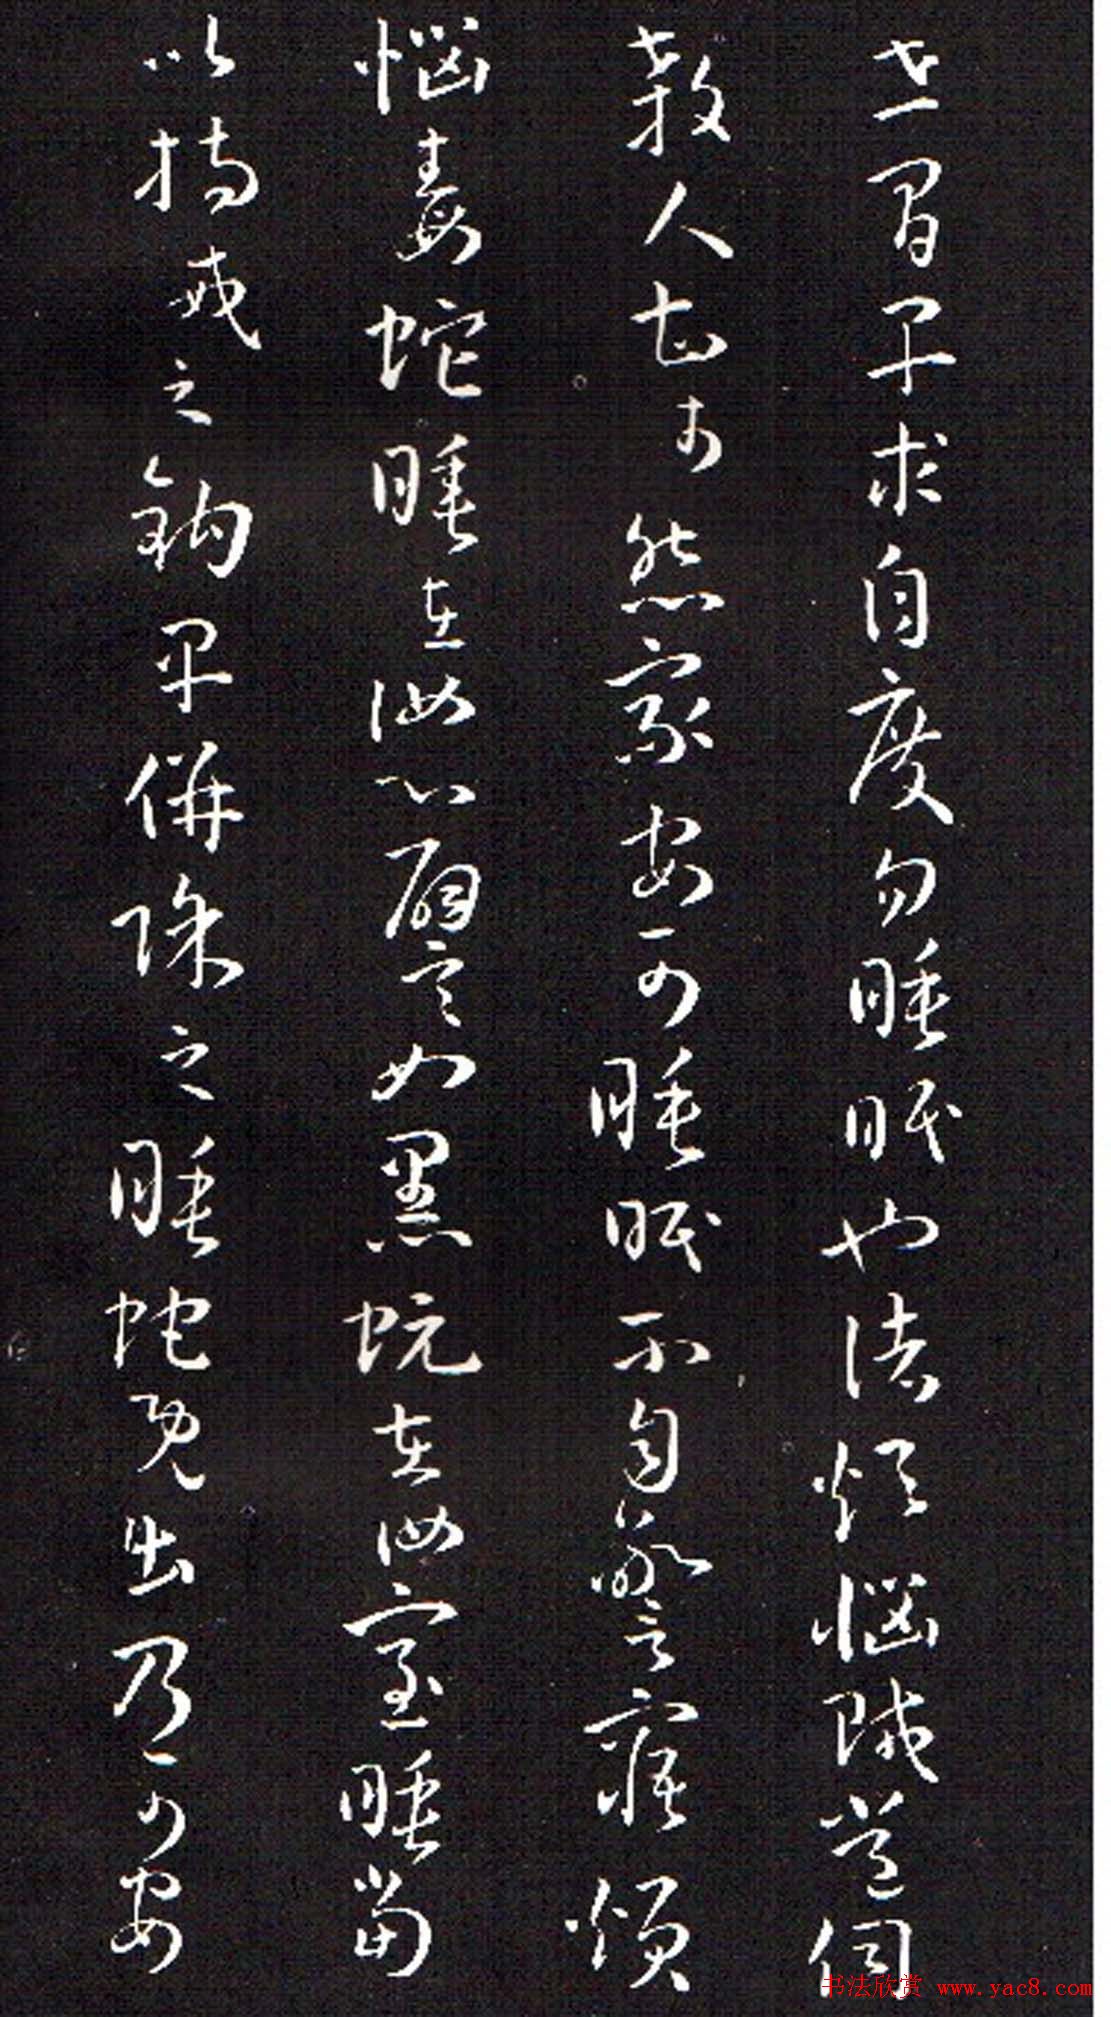 世間早求自度勿睡眠也諸煩惱賊常伺
殺人甚於怨家安可睡眠不自警寤煩
惱毒蛇睡在汝心譬如黑蚖在汝室睡當
以持戒之鉤早併除之睡蛇既出乃可安
书法欣赏 www.yac8.com